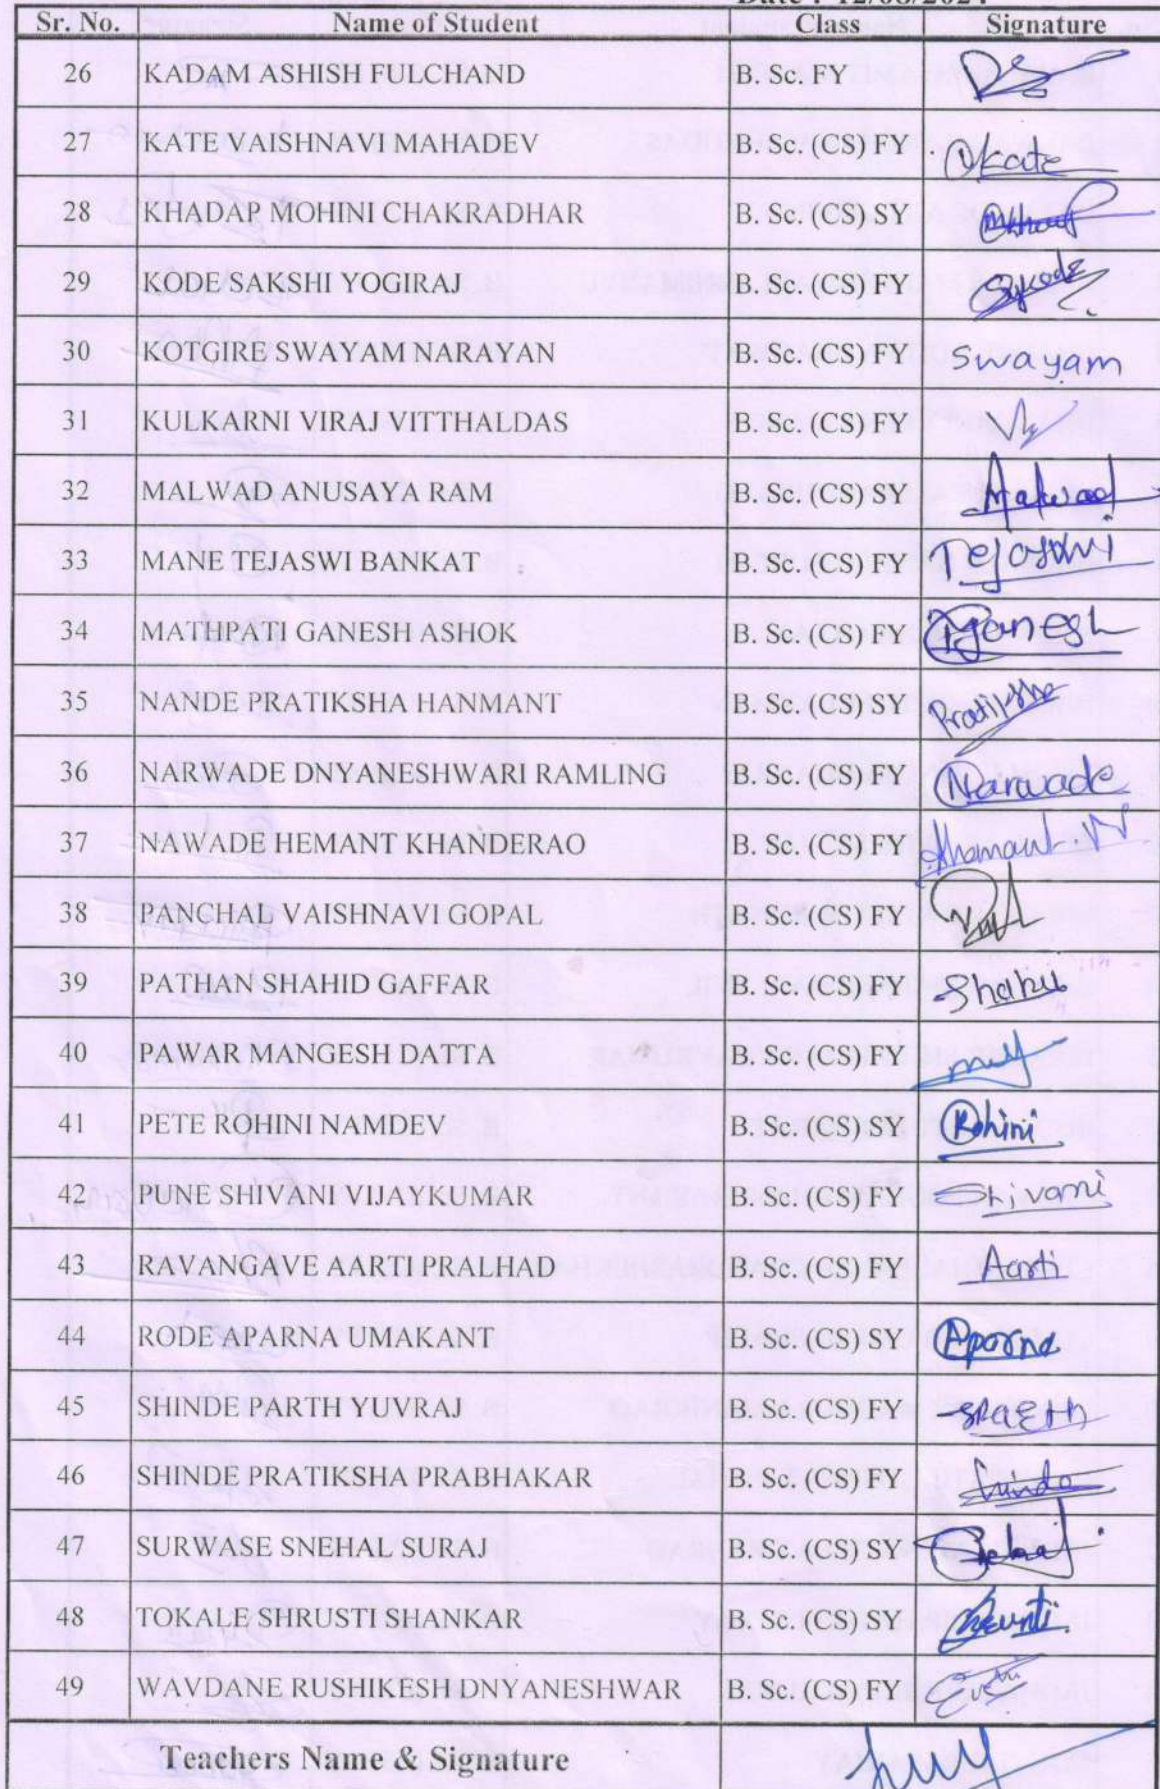 Date : 12/08/2024
Sr. No. Name of Student Class Signature
26 KADAM ASHISH FULCHAND B. Sc. FY
27 KATE VAISHNAVI MAHADEV B. Sc. (CS) FY Kate
28 KHADAP MOHINI CHAKRADHAR B. Sc. (CS) SY
29 KODE SAKSHI YOGIRAJ B. Sc. (CS) FY
30 KOTGIRE SWAYAM NARAYAN B. Sc. (CS) FY Swayam
31 KULKARNI VIRAJ VITTHALDAS B. Sc. (CS) FY
32 MALWAD ANUSAYA RAM B. Sc. (CS) SY Malwad
33 MANE TEJASWI BANKAT B. Sc. (CS) FY Tejaswi
34 MATHPATI GANESH ASHOK B. Sc. (CS) FY Ganesh
35 NANDE PRATIKSHA HANMANT B. Sc. (CS) SY Pratiksha
36 NARWADE DNYANESHWARI RAMLING B. Sc. (CS) FY Narwade
37 NAWADE HEMANT KHANDERAO B. Sc. (CS) FY
38 PANCHAL VAISHNAVI GOPAL B. Sc. (CS) FY
39 PATHAN SHAHID GAFFAR B. Sc. (CS) FY
40 PAWAR MANGESH DATTA B. Sc. (CS) FY
41 PETE ROHINI NAMDEV B. Sc. (CS) SY Rohini
42 PUNE SHIVANI VIJAYKUMAR B. Sc. (CS) FY Shivani
43 RAVANGAVE AARTI PRALHAD B. Sc. (CS) FY Aarti
44 RODE APARNA UMAKANT B. Sc. (CS) SY Aparna
45 SHINDE PARTH YUVRAJ B. Sc. (CS) FY
46 SHINDE PRATIKSHA PRABHAKAR B. Sc. (CS) FY
47 SURWASE SNEHAL SURAJ B. Sc. (CS) SY
48 TOKALE SHRUSTI SHANKAR B. Sc. (CS) SY
49 WAVDANE RUSHIKESH DNYANESHWAR B. Sc. (CS) FY
Teachers Name & Signature